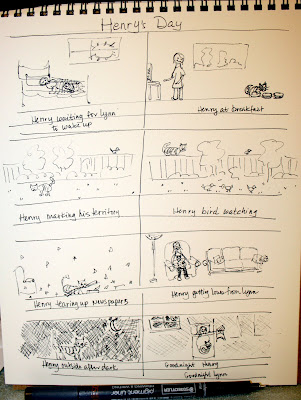 Henry's Day
Henry waiting for Lynn
to wake up
Henry at breakfast
Henry marking his territory
Henry bird watching
Henry tearing up newspapers
Henry getting loves from Lynn
Henry outside after dark
Goodnight Henry
Goodnight Lynn
STAEDTLER
pigment liner